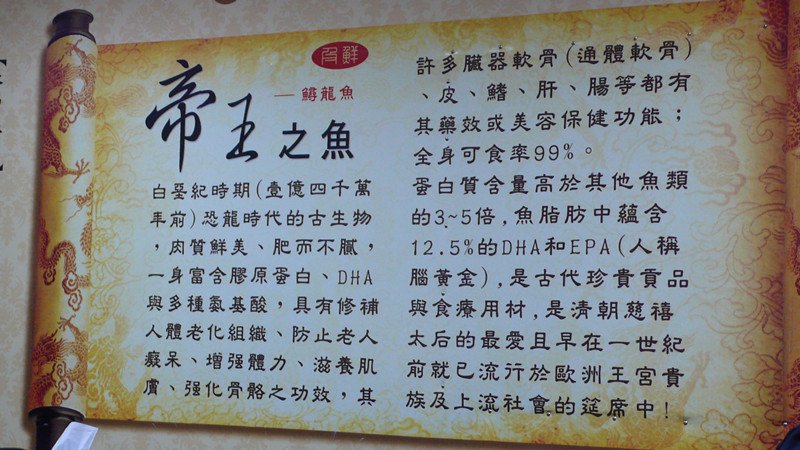 鮮
帝王之魚
— 鱘龍魚
白堊紀時期(壹億四千萬
年前)恐龍時代的古生物
，肉質鮮美、肥而不膩，
一身富含膠原蛋白、DHA
與多種氨基酸，具有修補
人體老化組織、防止老人
癡呆、增强體力、滋養肌
膚、强化骨骼之功效，其
許多臟器軟骨(通體軟骨)
、皮、鰭、肝、腸等都有
其藥效或美容保健功能；
全身可食率99%。
蛋白質含量高於其他魚類
的3~5倍,魚脂肪中蘊含
12.5%的DHA和EPA(人稱
腦黃金),是古代珍貴貢品
與食療用材,是清朝慈禧
太后的最愛且早在一世紀
前就已流行於歐洲王宮貴
族及上流社會的筵席中!